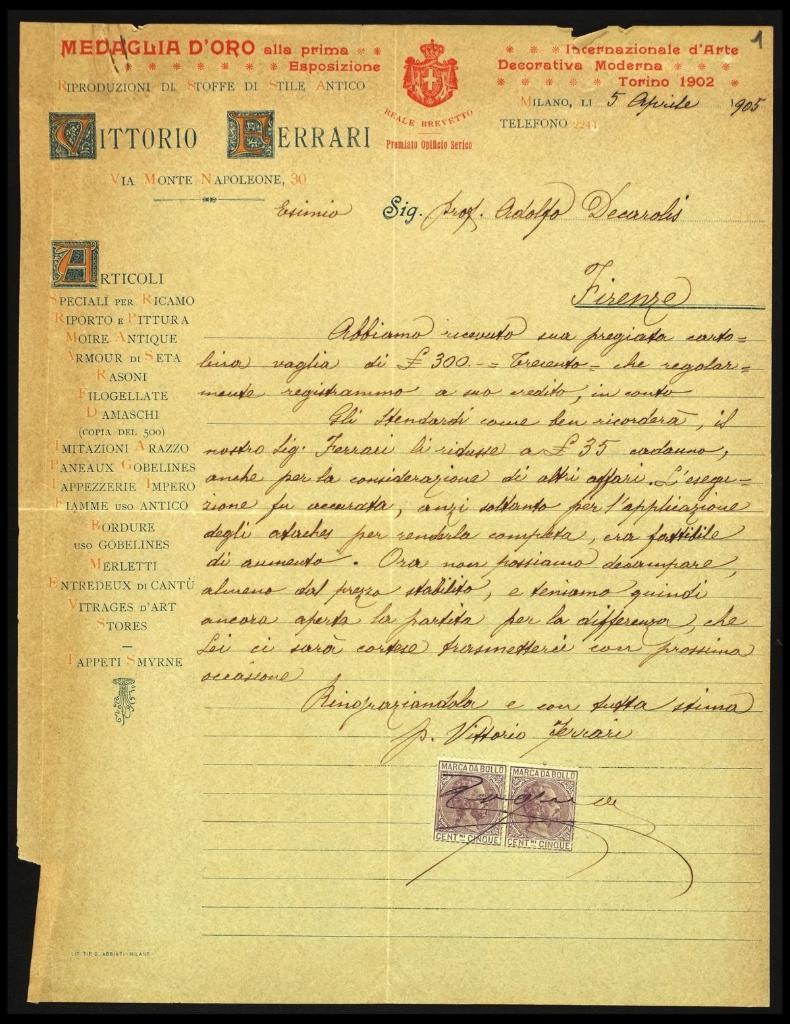 1
MEDAGLIA D'ORO alla prima
Esposizione
Internazionale d'Arte
Decorativa Moderna
Torino 1902
RIPRODUZIONI DI STOFFE DI STILE ANTICO
REALE BREVETTO
Premiato Opificio Serico
MILANO, LI 5 Aprile 1905
TELEFONO 2241
VITTORIO FERRARI
VIA MONTE NAPOLEONE, 30
Esimio Sig. Prof. Adolfo Decarolis
Firenze
ARTICOLI
SPECIALI PER RICAMO
RIPORTO E PITTURA
MOIRE ANTIQUE
ARMOUR DI SETA
RASONI
FILOGELLATE
DAMASCHI
(COPIA DEL 500)
IMITAZIONI ARAZZO
PANEAUX GOBELINES
TAPPEZZERIE IMPERO
FIAMME USO ANTICO
BORDURE
USO GOBELINES
MERLETTI
ENTREDEUX DI CANTÙ
VITRAGES D'ART
STORES
TAPPETI SMYRNE
Abbiamo ricevuto sua pregiata carto=
lina vaglia di £ 300.-= Trecento= che regolar=
mente registrammo a suo credito, in conto
Gli Stendardi come ben ricorderà, il
nostro Sig. Ferrari li ridusse a £ 35 cadauno,
anche per la considerazione di altri affari. L'esegu=
zione fu accurata, anzi soltanto per l'applicazione
degli ataches per renderla completa, era fattibile
di aumento. Ora non possiamo decampare,
almeno dal prezzo stabilito, e teniamo quindi
ancora aperta la partita per la differenza, che
Lei ci sarà cortese trasmetterci con prossima
occasione
Ringraziandola e con tutta stima
p. Vittorio Ferrari
MARCA DA BOLLO MARCA DA BOLLO
CENT.MI CINQUE CENT.MI CINQUE
LIT. TIP. G. ABBIATI - MILANO